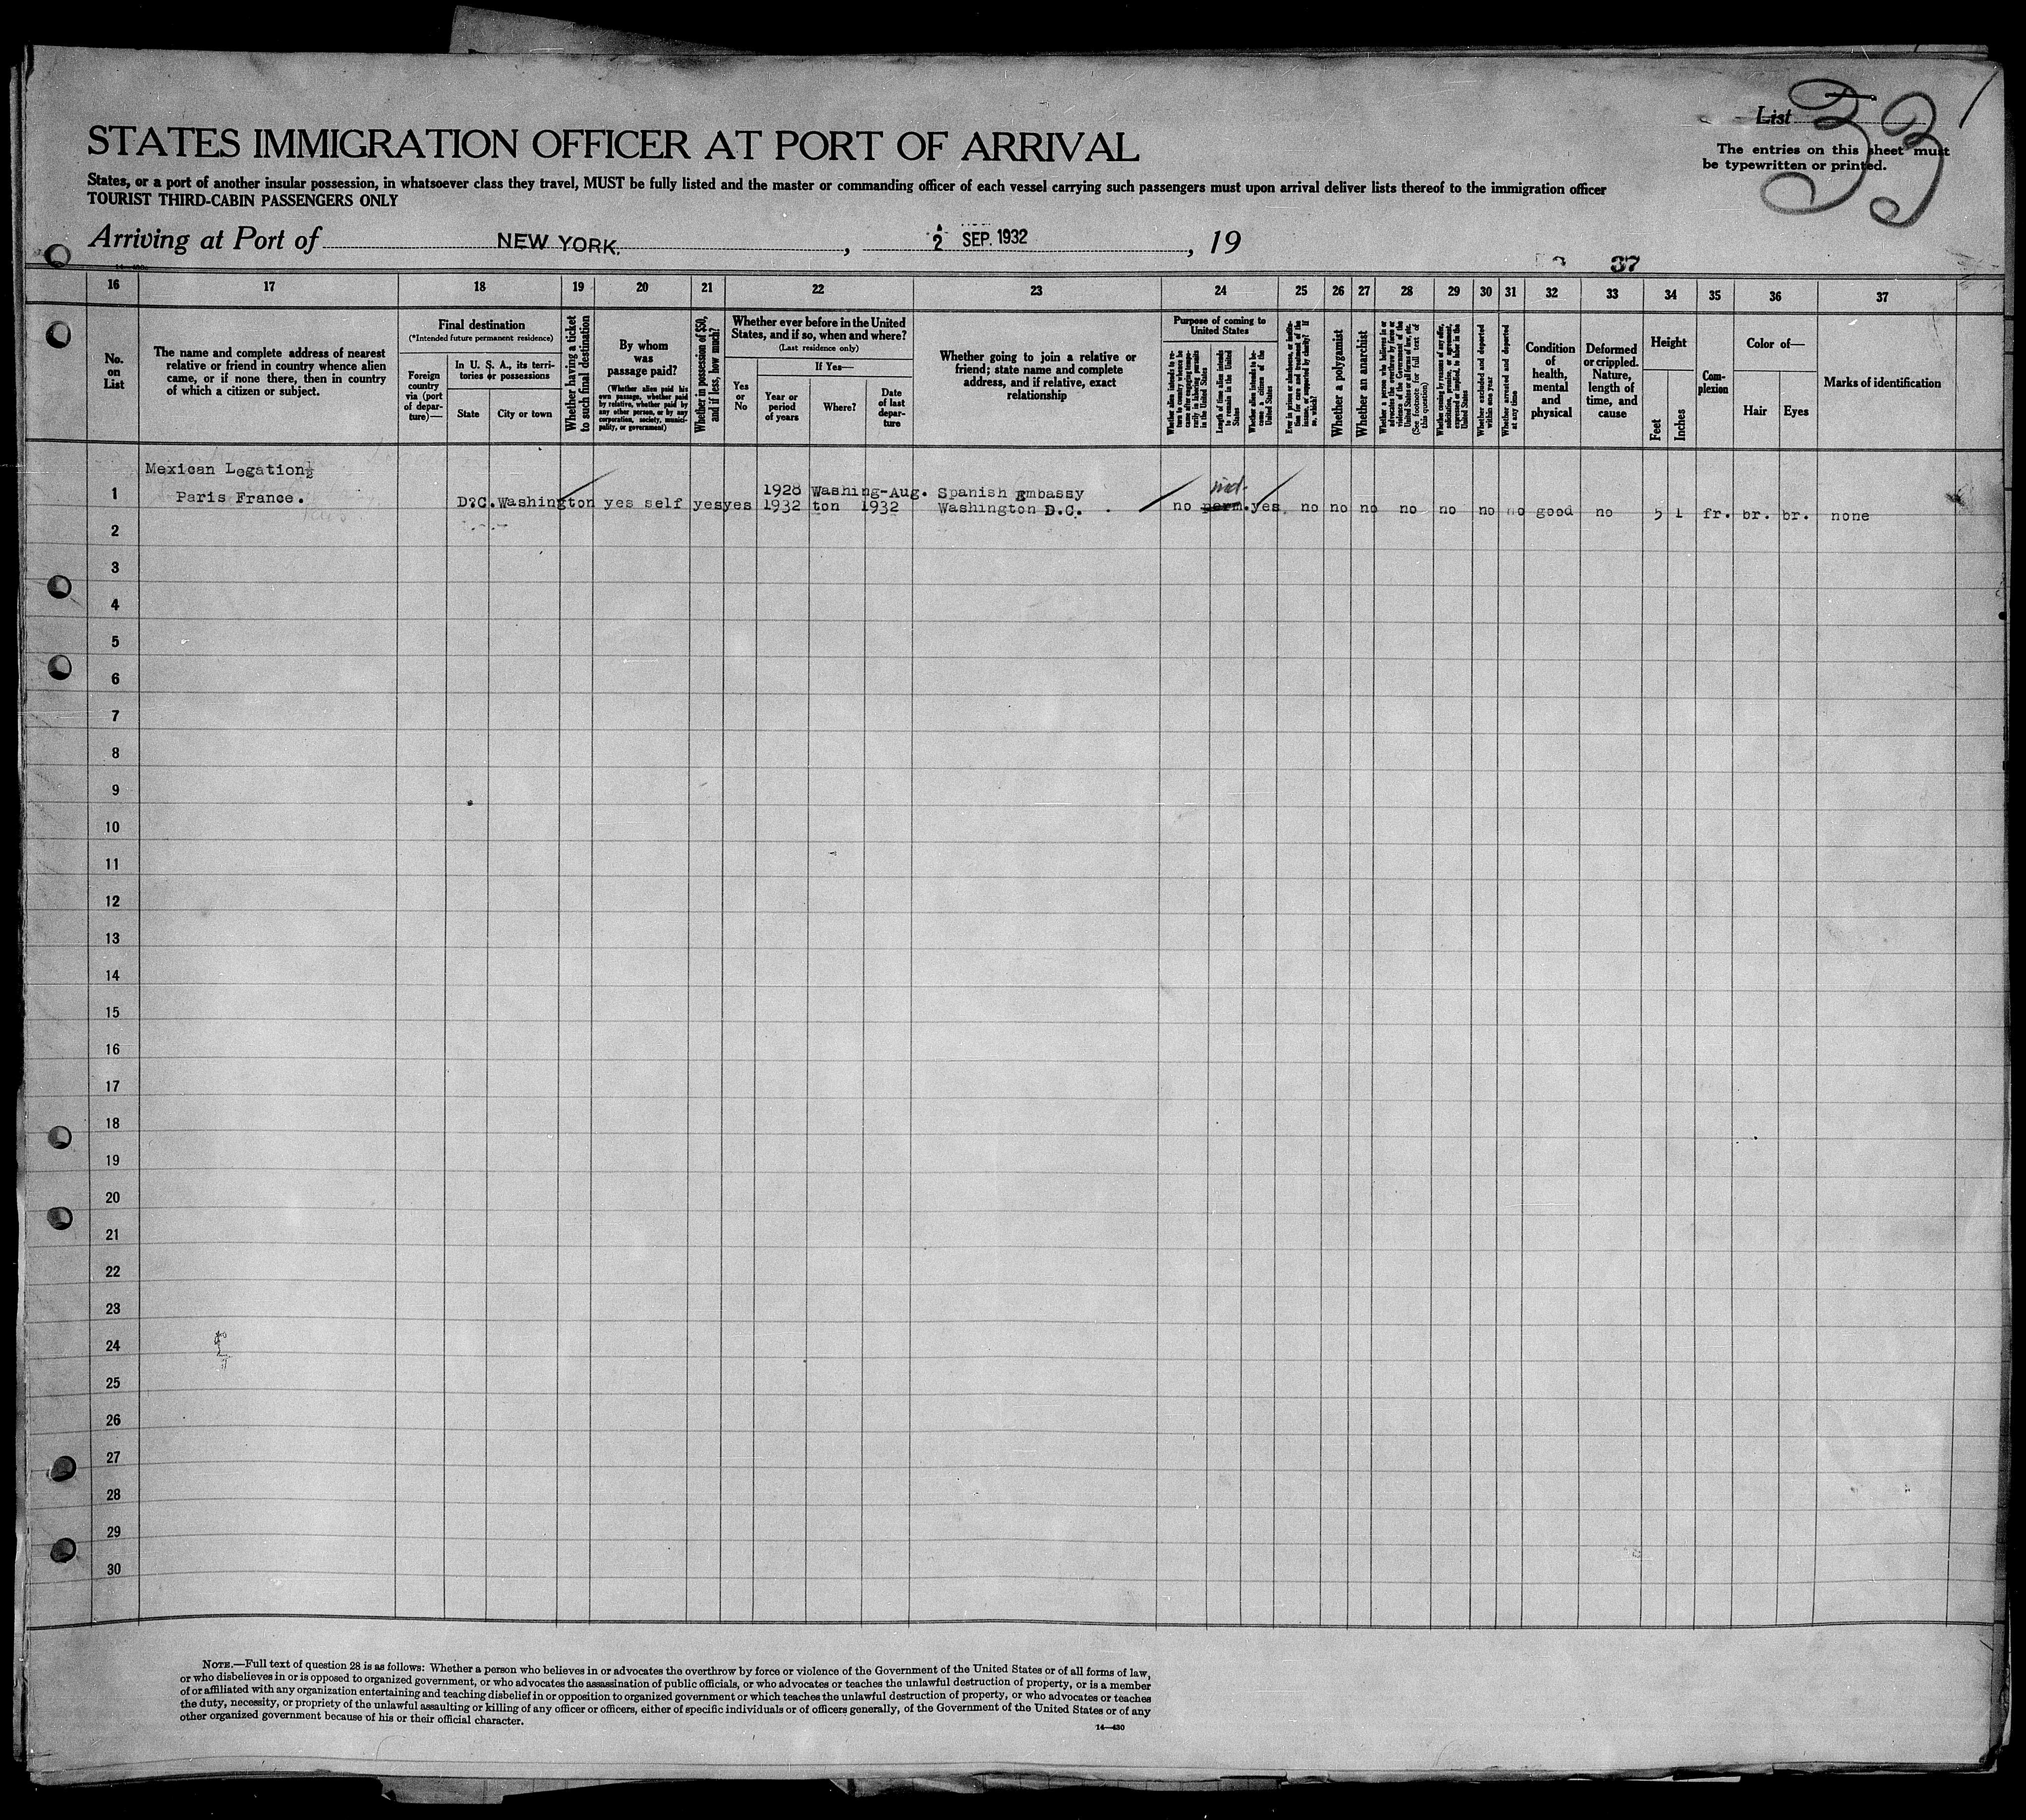 List 33
The entries on this sheet must
be typewritten or printed.
STATES IMMIGRATION OFFICER AT PORT OF ARRIVAL
States, or a port of another insular possession, in whatsoever class they travel, MUST be fully listed and the master or commanding officer of each vessel carrying such passengers must upon arrival deliver lists thereof to the immigration officer
TOURIST THIRD-CABIN PASSENGERS ONLY
Arriving at Port of NEW YORK. , 2 SEP. 1932 , 19
37
16 17 18 19 20 21 22 23 24 25 26 27 28 29 30 31 32 33 34 35 36 37
No.
on
List
The name and complete address of nearest
relative or friend in country whence alien
came, or if none there, then in country
of which a citizen or subject.
Final destination
(*Intended future permanent residence)
Foreign
country
via (port
of depar-
ture)—
In U. S. A., its terri-
tories or possessions
State
City or town
Whether having a ticket
to such final destination
By whom
was
passage paid?
(Whether alien paid his
own passage, whether paid
by relative, whether paid by
any other person, or by any
corporation, society, munici-
pality, or government)
Whether in possession of $50,
and if less, how much?
Whether ever before in the United
States, and if so, when and where?
(Last residence only)
Yes
or
No
If Yes—
Year or
period
of years
Where?
Date
of last
depar-
ture
Whether going to join a relative or
friend; state name and complete
address, and if relative, exact
relationship
Purpose of coming to
United States
Whether alien intends to re-
turn to country whence he
came after engaging tempo-
rarily in laboring pursuits
in the United States
Length of time alien intends
to remain in the United
States
Whether alien intends to be-
come a citizen of the
United States
Ever in prison or almshouse, or institu-
tion for care and treatment of the
insane, or supported by charity? If
so, which?
Whether a polygamist
Whether an anarchist
Whether a person who believes in or
advocates the overthrow by force or
violence of the Government of the
United States or all forms of law, etc.
(See footnote for full text of
this question)
Whether coming by reason of any offer,
solicitation, promise, or agreement,
expressed or implied, to labor in the
United States
Whether excluded and deported
within one year
Whether arrested and deported
at any time
Condition
of
health,
mental
and
physical
Deformed
or crippled.
Nature,
length of
time, and
cause
Height
Feet
Inches
Com-
plexion
Color of—
Hair
Eyes
Marks of identification
Mexican Legation
1 Paris France. D.C. Washington yes self yes yes 1928 1932 Washing-ton Aug. 1932 Spanish Embassy Washington D.C. no perm. ind. yes no no no no no no no good no 5 1 fr. br. br. none
2
3
4
5
6
7
8
9
10
11
12
13
14
15
16
17
18
19
20
21
22
23
24
25
26
27
28
29
30
NOTE.—Full text of question 28 is as follows: Whether a person who believes in or advocates the overthrow by force or violence of the Government of the United States or of all forms of law,
or who disbelieves in or is opposed to organized government, or who advocates the assassination of public officials, or who advocates or teaches the unlawful destruction of property, or is a member
of or affiliated with any organization entertaining and teaching disbelief in or opposition to organized government or which teaches the unlawful destruction of property, or who advocates or teaches
the duty, necessity, or propriety of the unlawful assaulting or killing of any officer or officers, either of specific individuals or of officers generally, of the Government of the United States or of any
other organized government because of his or their official character.
14—430